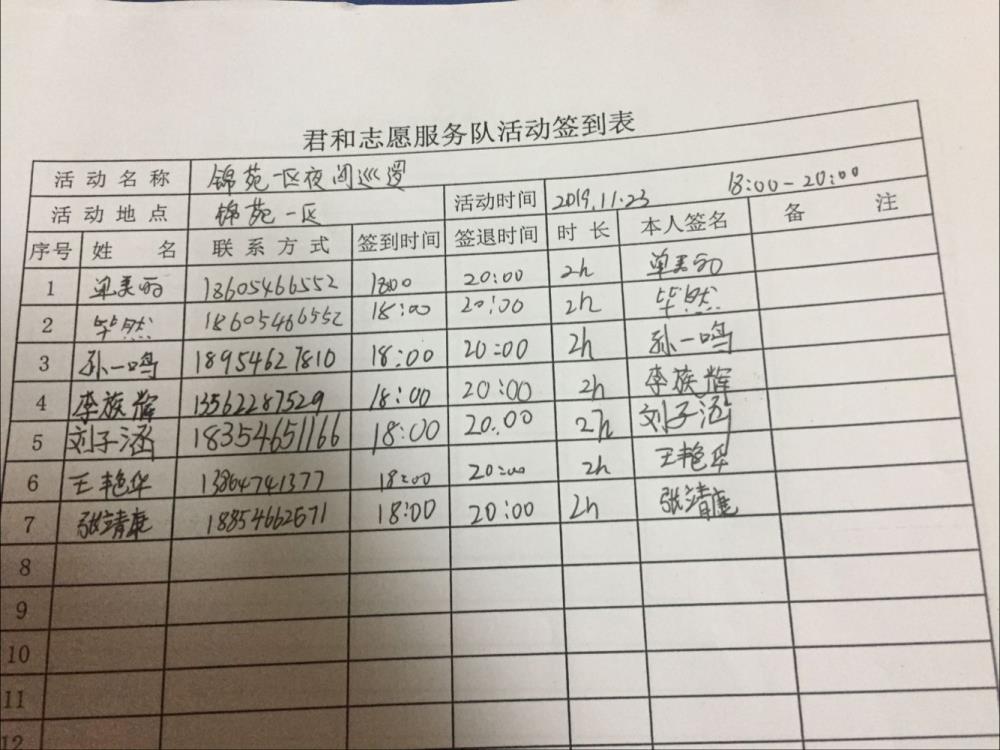 君和志愿服务队活动签到表
活动名称 锦苑一区夜间巡逻
活动地点 锦苑一区 活动时间 2019.11.23 18:00-20:00
序号 姓名 联系方式 签到时间 签退时间 时长 本人签名 备注
1 单美丽 18605466552 18:00 20:00 2h 单美丽
2 毕然 18605466552 18:00 20:00 2h 毕然
3 孙一鸣 18954627810 18:00 20:00 2h 孙一鸣
4 李族辉 13562287529 18:00 20:00 2h 李族辉
5 刘子涵 18354651166 18:00 20.00 2h 刘子涵
6 王艳华 13864741377 18:00 20:00 2h 王艳华
7 张靖康 18854662671 18:00 20:00 2h 张靖康
8
9
10
11
12